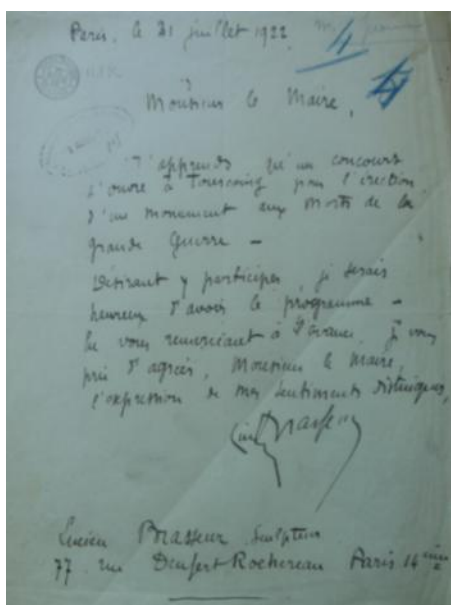 Paris, le 21 juillet 1922
4
Monsieur le Maire,
J'apprends qu'un concours
s'ouvre à Tourcoing pour l'érection
d'un monument aux Morts de la
grande Guerre —
Désirant y participer, je serais
heureux d'avoir le programme —
En vous remerciant à l'avance, je vous
prie d'agréer, Monsieur le Maire,
l'expression de mes sentiments distingués,
Lucien Brasseur Sculpteur
77 rue Denfert Rochereau Paris 14